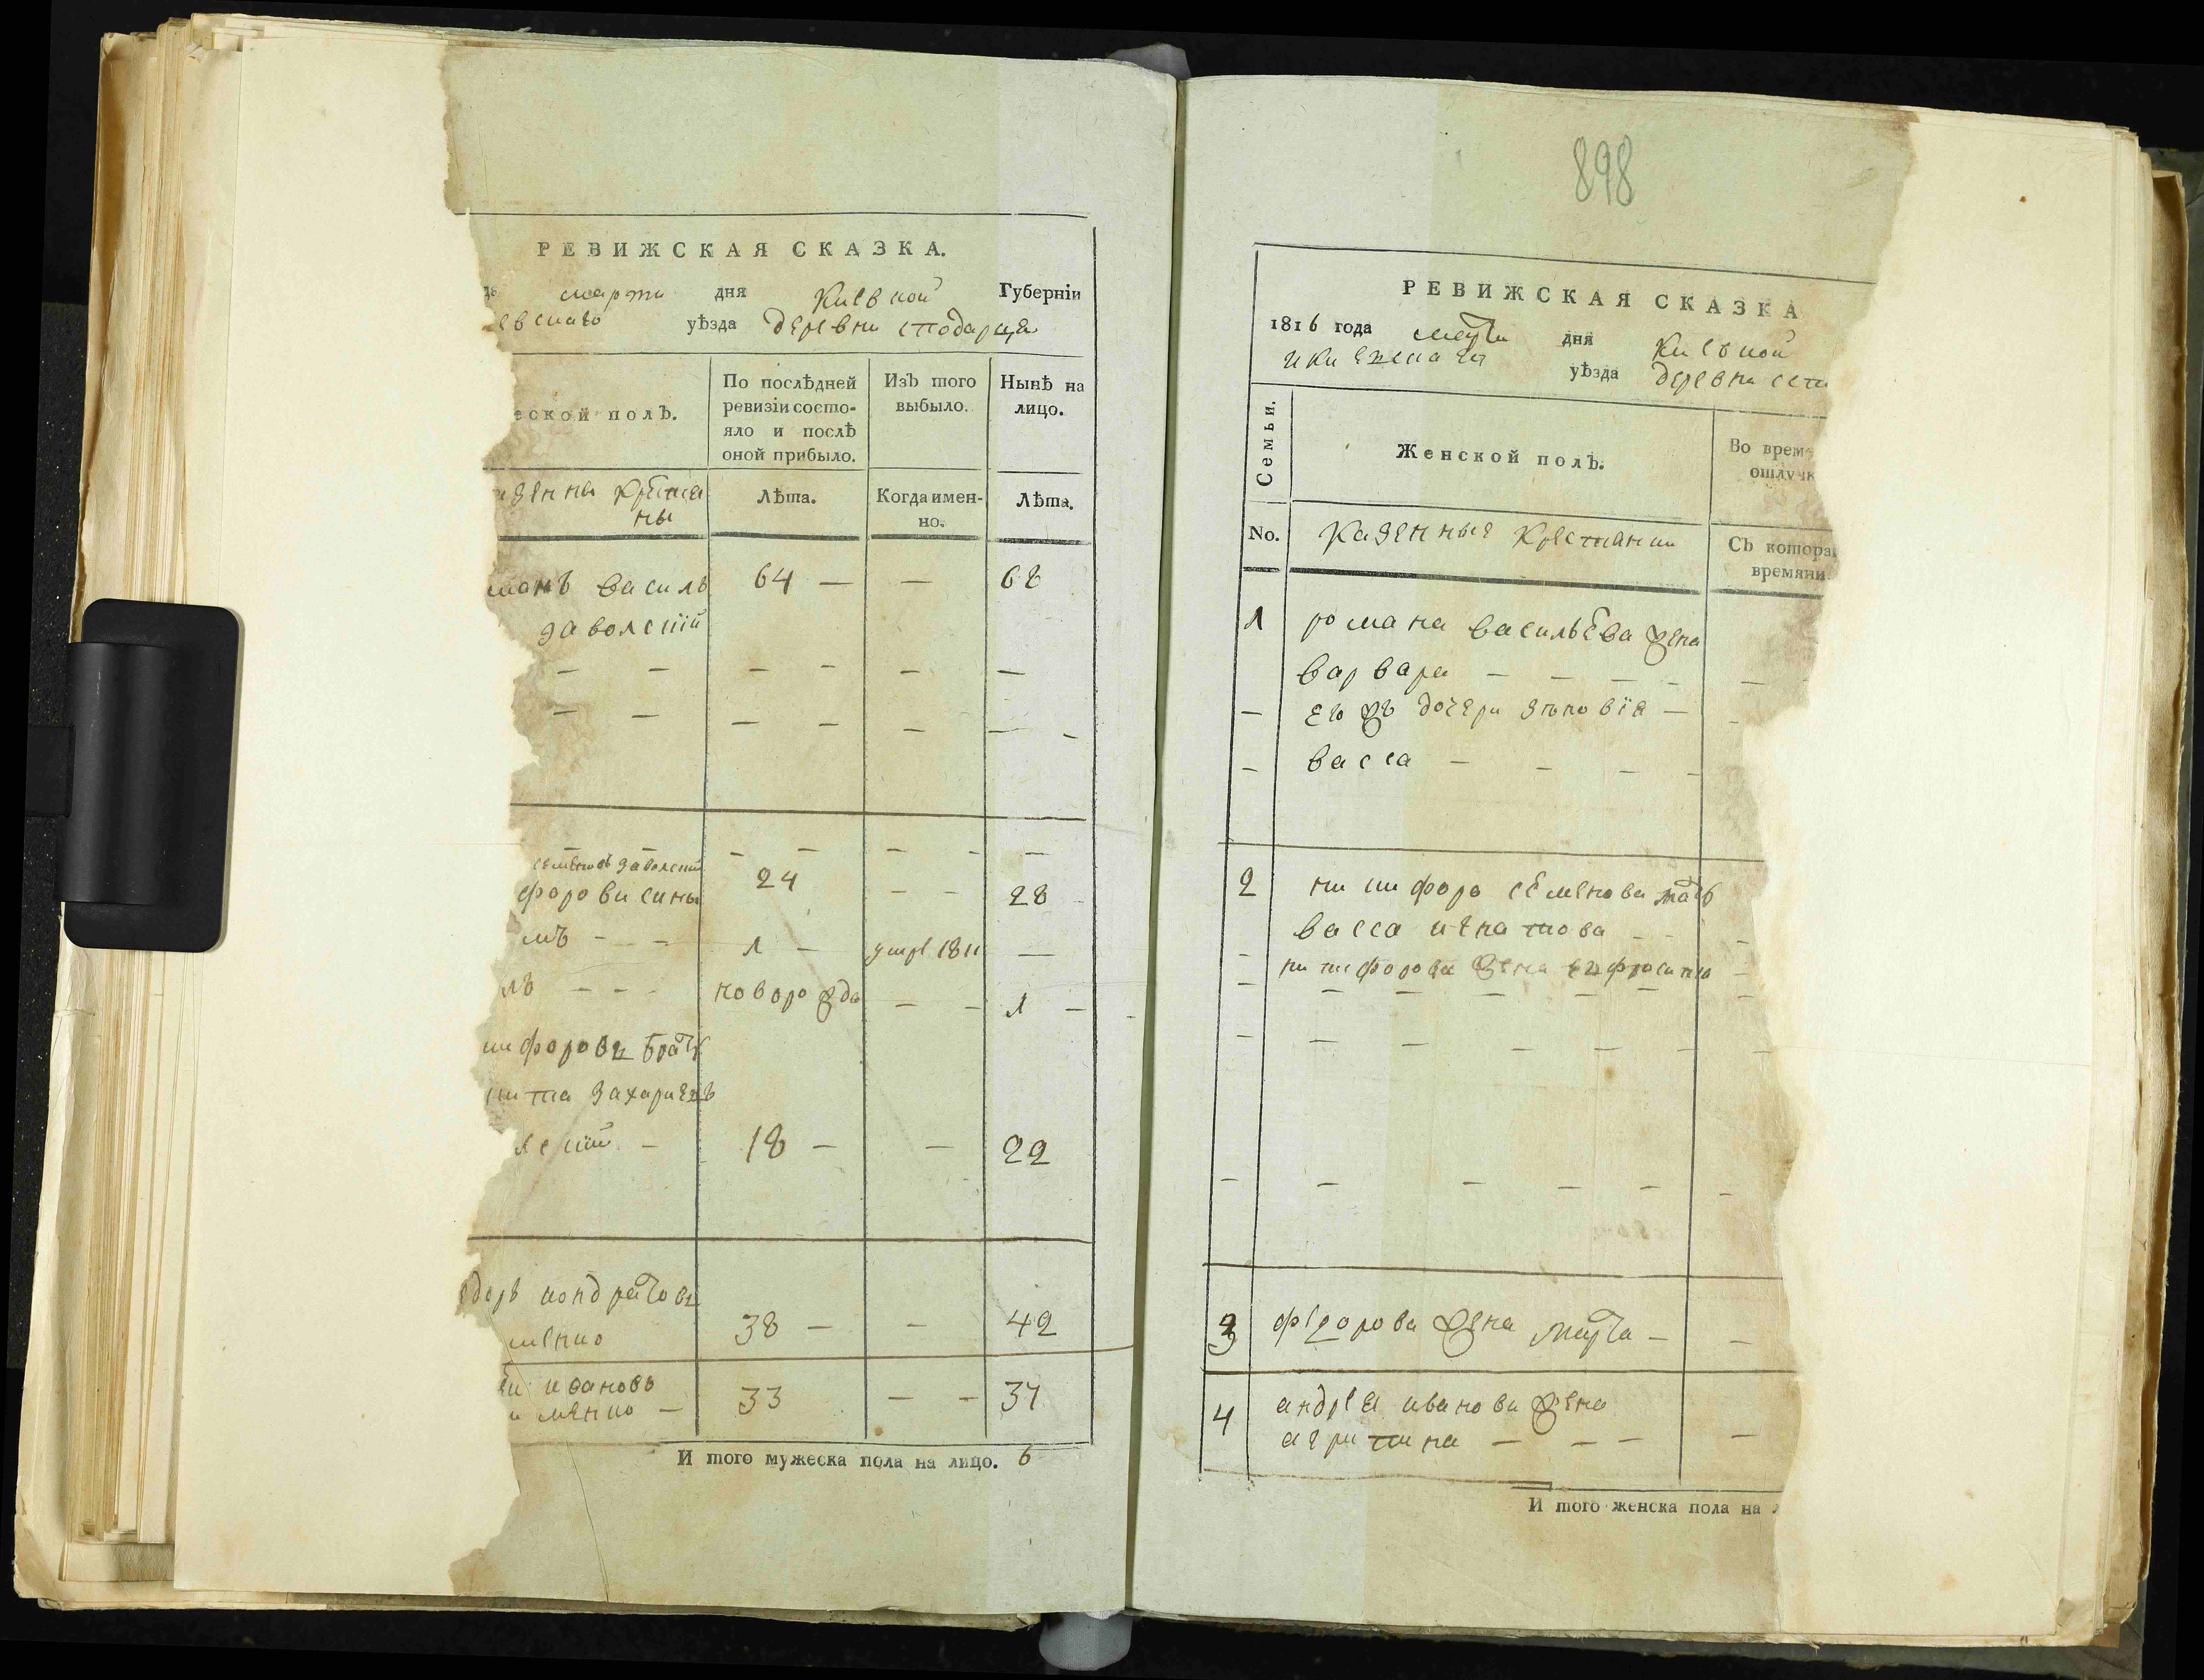 РЕВИЖСКАЯ СКАЗКА.
марта дня Киевской Губерніи
евскаго уѣзда деревни
ской полЪ.
По послѣдней ревизіи состо-
яло и послѣ
оной прибыло.
ИзЪ того
выбыло.
Нынѣ на
лицо.
Лѣта.
Когда имен-
но.
Лѣта.
манъ василь 64 — — 68
заволскій
семеновъ заволский
форови сины 24 — — 28
мъ — — 1 — умре 1811 —
лъ — — — новорожда — — 1 —
кифоровъ братъ
кита захариевъ
лский — 18 — — 22
едоръ кондратовъ
менко 38 — — 42
ей ивановъ
менко — 33 — — 37
И того мужеска пола на лицо. 6
898
РЕВИЖСКАЯ СКАЗКА
1816 года марта дня Киевской
уѣзда деревни
Семьи.
Женской полЪ.
Во врем
отлучк
No.
Казенные крестянки
СЪ котора
времяни
1 романа васильева жена
варвара — — — —
— его жъ дочери зѣновія —
— васса — — — —
2 никифора семенова мать
васса игнатова — —
— никифорова жена ефросиния —
3 федорова жена марта — —
4 андрея иванова жена
агрипина — — — —
И того женска пола на